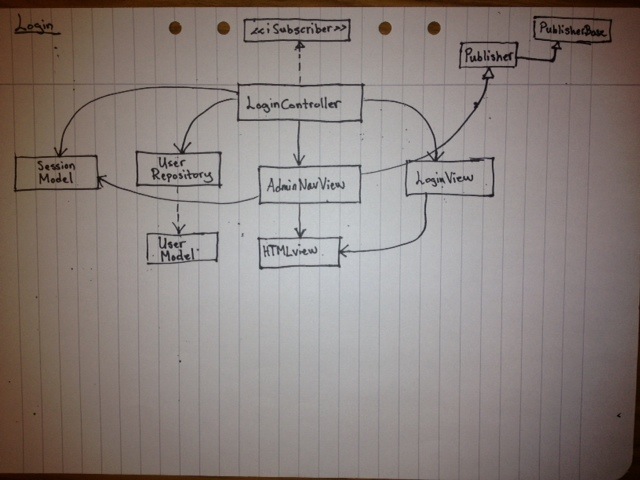 Login
<<iSubscriber>>
PublisherBase
Publisher
LoginController
Session
Model
User
Repository
AdminNavView
LoginView
User
Model
HTMLview